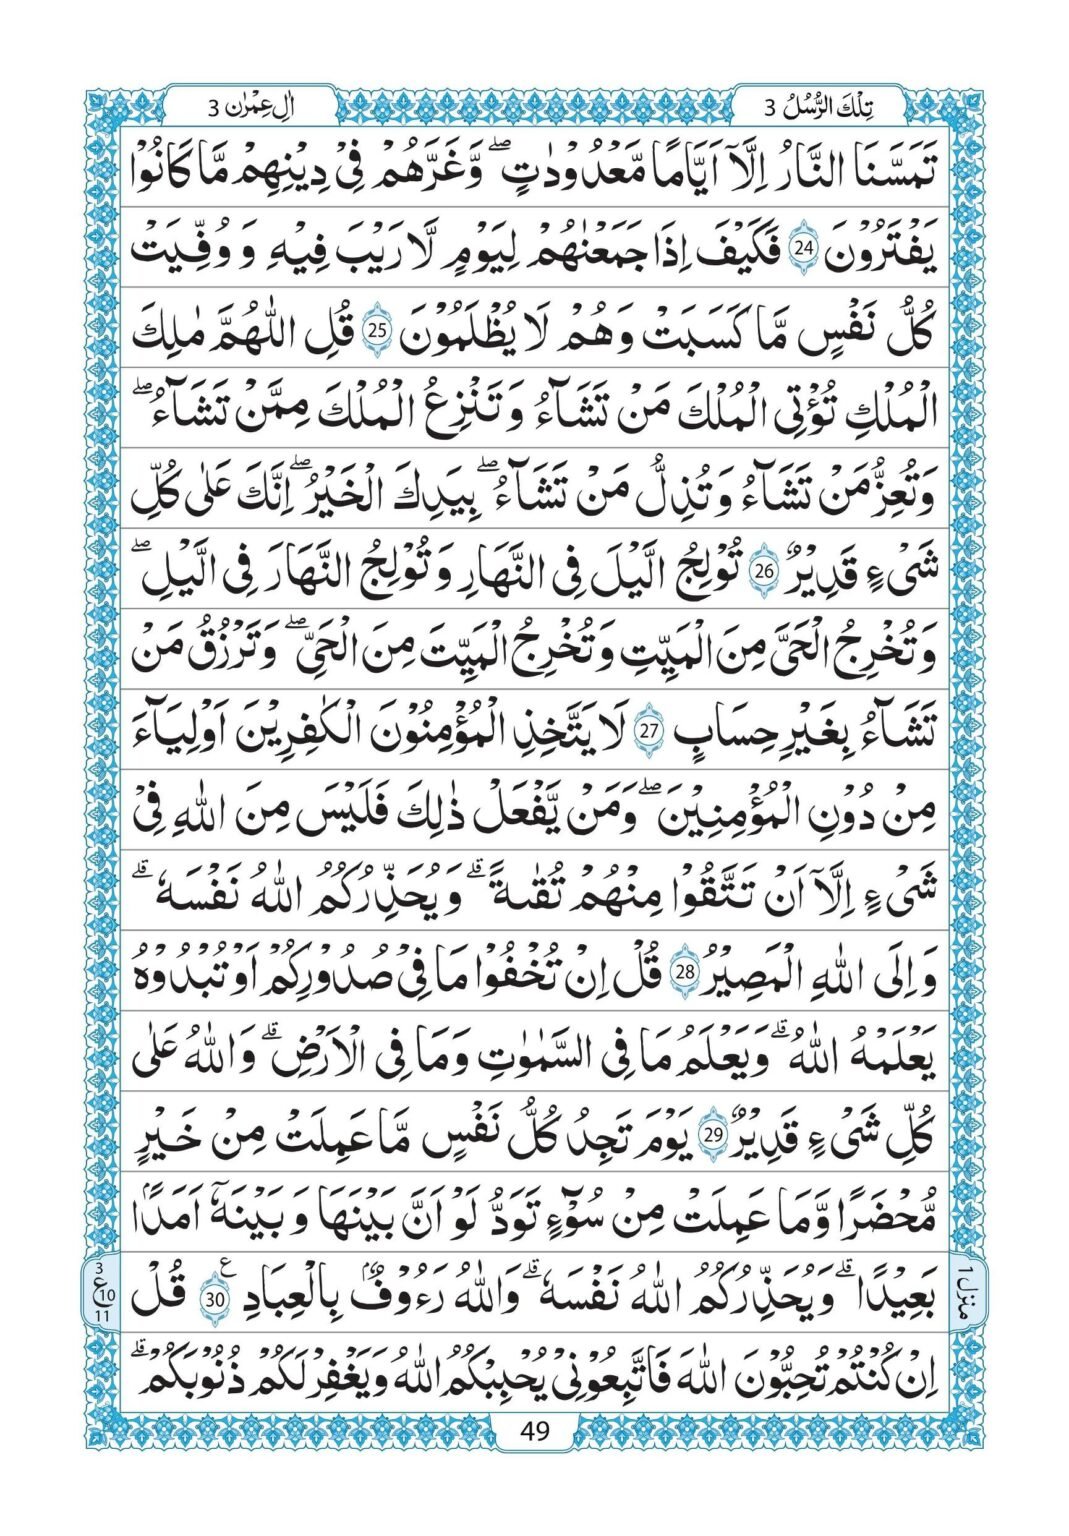 تِلْكَ الرُّسُلُ 3
اٰلِ عِمْرٰن 3
تَمَسَّنَا النَّارُ اِلَّاۤ اَيَّامًا مَّعْدُوْدٰتٍ ۖ وَّغَرَّهُمْ فِيْ دِيْنِهِمْ مَّا كَانُوْا
يَفْتَرُوْنَ 24 فَكَيْفَ اِذَا جَمَعْنٰهُمْ لِيَوْمٍ لَّا رَيْبَ فِيْهِ وَ وُفِّيَتْ
كُلُّ نَفْسٍ مَّا كَسَبَتْ وَهُمْ لَا يُظْلَمُوْنَ 25 قُلِ اللّٰهُمَّ مٰلِكَ
الْمُلْكِ تُؤْتِي الْمُلْكَ مَنْ تَشَآءُ وَتَنْزِعُ الْمُلْكَ مِمَّنْ تَشَآءُ ۖ
وَتُعِزُّ مَنْ تَشَآءُ وَتُذِلُّ مَنْ تَشَآءُ ۖ بِيَدِكَ الْخَيْرُ ۖ اِنَّكَ عَلٰى كُلِّ
شَيْءٍ قَدِيْرٌ 26 تُوْلِجُ الَّيْلَ فِي النَّهَارِ وَتُوْلِجُ النَّهَارَ فِي الَّيْلِ ۖ
وَتُخْرِجُ الْحَيَّ مِنَ الْمَيِّتِ وَتُخْرِجُ الْمَيِّتَ مِنَ الْحَيِّ ۖ وَتَرْزُقُ مَنْ
تَشَآءُ بِغَيْرِ حِسَابٍ 27 لَا يَتَّخِذِ الْمُؤْمِنُوْنَ الْكٰفِرِيْنَ اَوْلِيَآءَ
مِنْ دُوْنِ الْمُؤْمِنِيْنَ ۖ وَمَنْ يَّفْعَلْ ذٰلِكَ فَلَيْسَ مِنَ اللّٰهِ فِيْ
شَيْءٍ اِلَّاۤ اَنْ تَتَّقُوْا مِنْهُمْ تُقٰىةً ۗ وَيُحَذِّرُكُمُ اللّٰهُ نَفْسَهٗ ۗ
وَاِلَى اللّٰهِ الْمَصِيْرُ 28 قُلْ اِنْ تُخْفُوْا مَا فِيْ صُدُوْرِكُمْ اَوْ تُبْدُوْهُ
يَعْلَمْهُ اللّٰهُ ۗ وَيَعْلَمُ مَا فِي السَّمٰوٰتِ وَمَا فِي الْاَرْضِ ۗ وَاللّٰهُ عَلٰى
كُلِّ شَيْءٍ قَدِيْرٌ 29 يَوْمَ تَجِدُ كُلُّ نَفْسٍ مَّا عَمِلَتْ مِنْ خَيْرٍ
مُّحْضَرًا وَّمَا عَمِلَتْ مِنْ سُوْٓءٍ تَوَدُّ لَوْ اَنَّ بَيْنَهَا وَبَيْنَهٗۤ اَمَدًاۢ
بَعِيْدًا ۗ وَيُحَذِّرُكُمُ اللّٰهُ نَفْسَهٗ ۗ وَاللّٰهُ رَءُوْفٌۢ بِالْعِبَادِ 30 ع قُلْ
اِنْ كُنْتُمْ تُحِبُّوْنَ اللّٰهَ فَاتَّبِعُوْنِيْ يُحْبِبْكُمُ اللّٰهُ وَيَغْفِرْ لَكُمْ ذُنُوْبَكُمْ ۗ
منزل 1
3
ع 10
11
49